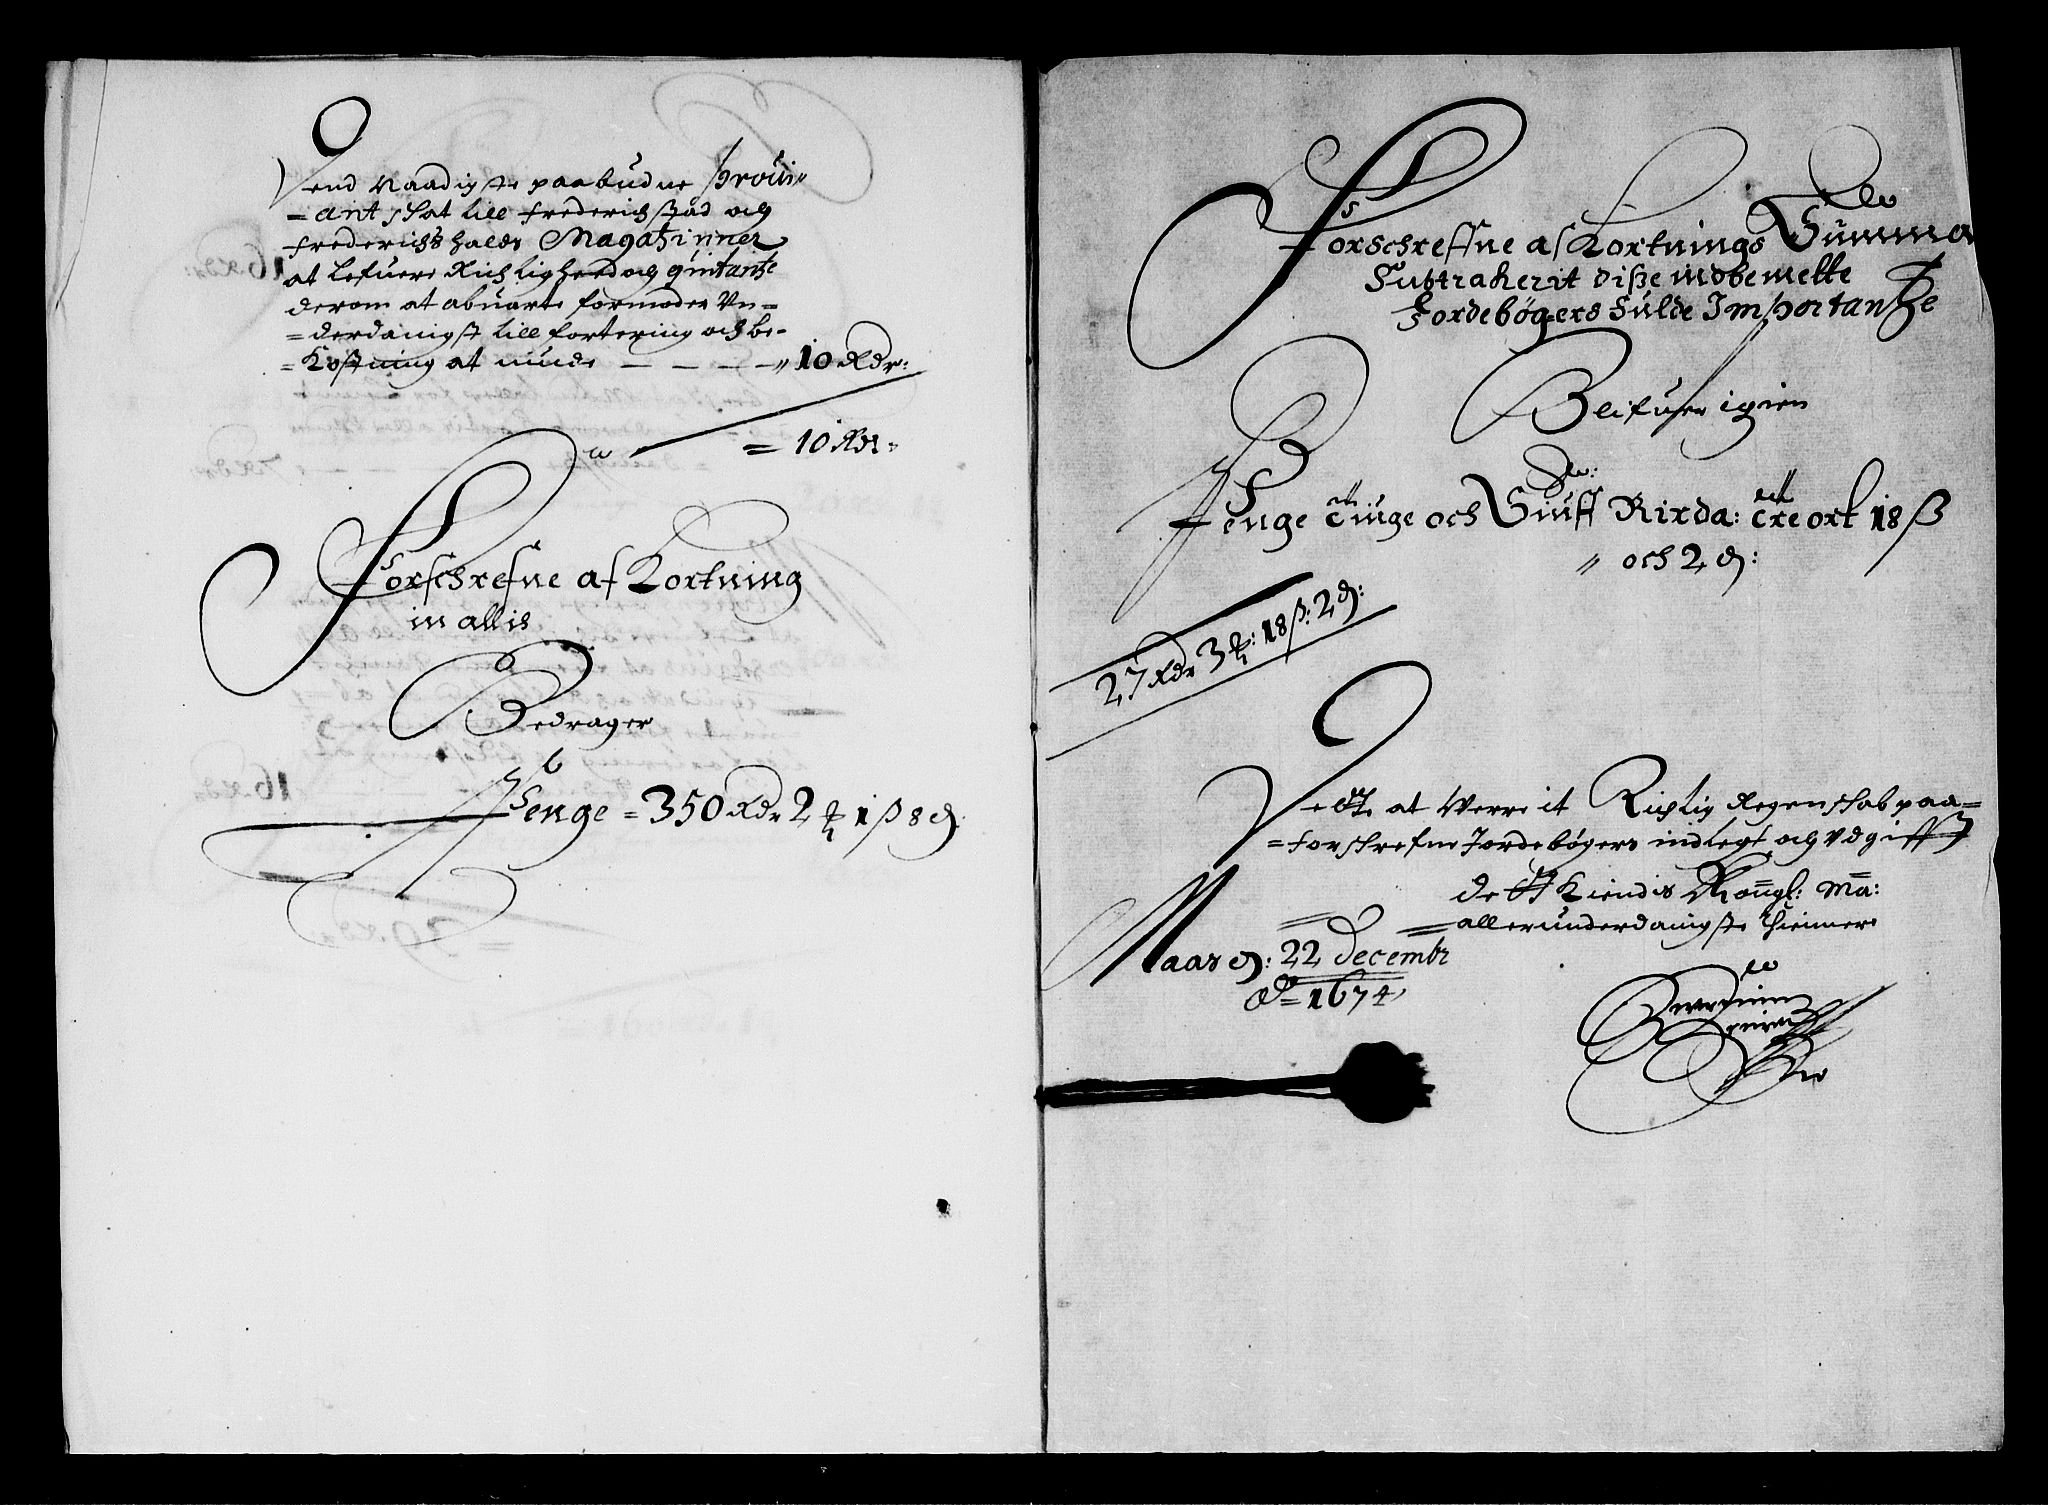 end Naadigste paabudne provi=
=ant skat till Frederichstad och
Frederichshalds Magatziner
at lefuere Richtighed och quitantze
derom at abuarte formoder Vn=
=derdanigst till fortering och be=
=Kostning at niude — — — 10 Rdr:
= 10 Rdr:
Forschrefne af Kortning
in allis
Bedrager
Penge = 350 Rdr 2 ȣ 1 ß 8 ₰
Forschreffne af Kortnings Summa
Subtraherit diße indbemelte
Jordebøgers fulde Importantze
Blifuer igien
Penge Tiuge och Siuff Rixda: tre ort 18 ß
och 2 ₰:
27 Rdr 3 ȣ: 18 ß: 2 ₰:
dette at Werre it Richtig Regenskab paa=
=forskrefne Jordebøgers indtegt och vdgifft
dett Kiendis Kongl: Ma:
allerunderdanigste Thienner
Naas d: 22 decembr
Ao= 1674